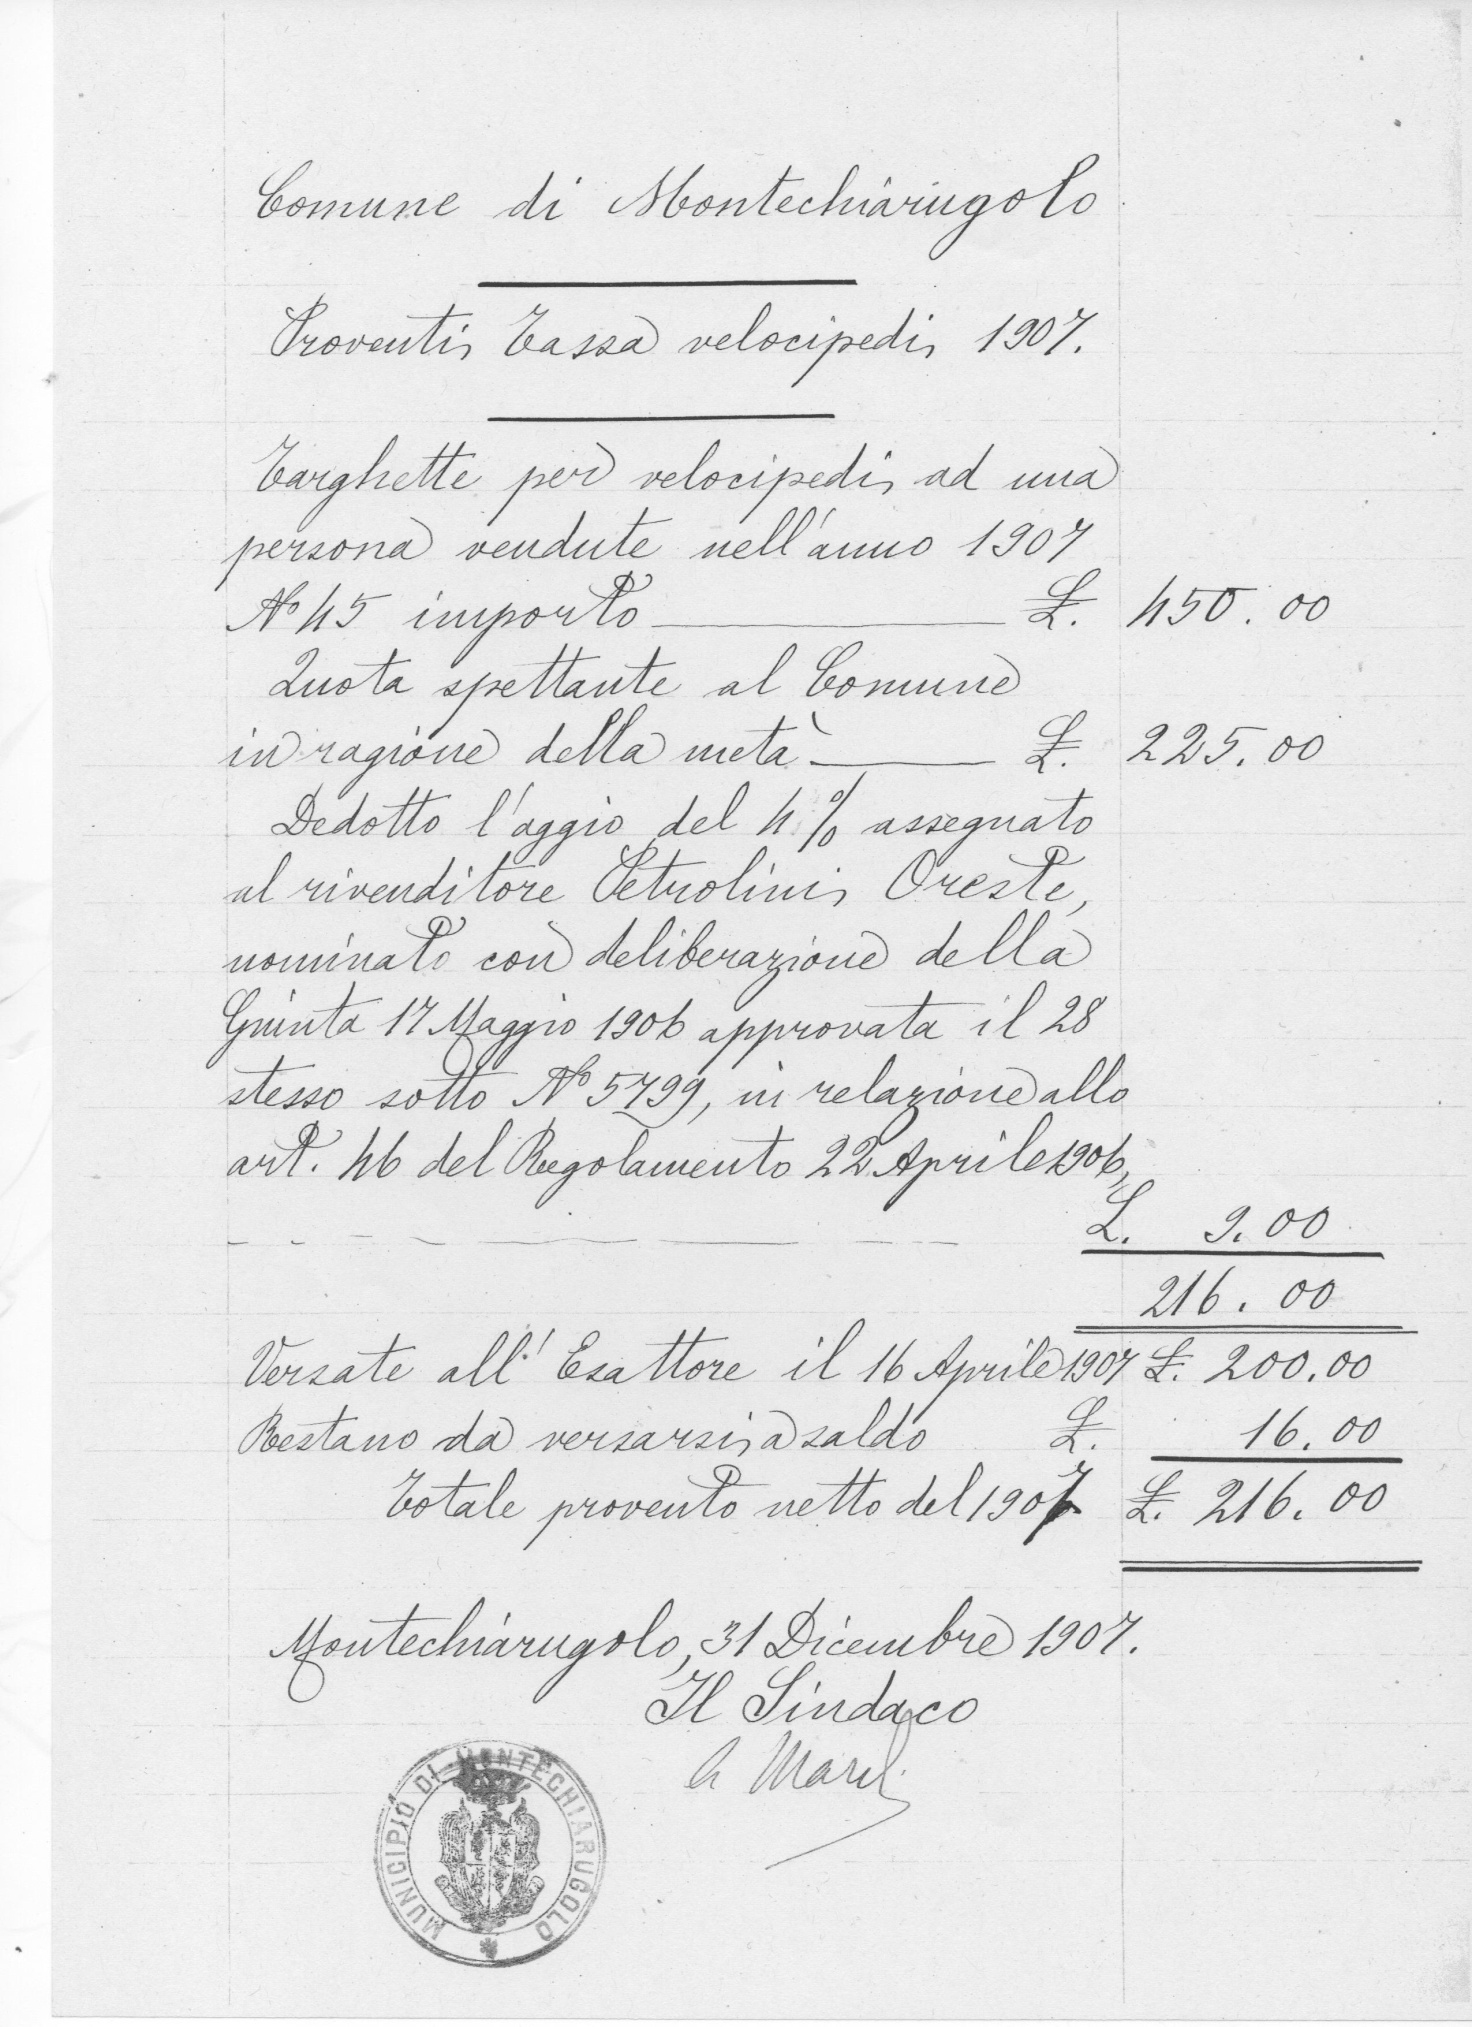 Comune di Montechiarugolo
Proventi Tassa velocipedi 1907.
Targhette per velocipedi ad una
persona vendute nell'anno 1907
No 45 importo £. 450.00
Quota spettante al Comune
in ragione della metà £. 225.00
Dedotto l'aggio del 4% assegnato
al rivenditore Petrolini Oreste,
nominato con deliberazione della
Giunta 17 Maggio 1906 approvata il 28
stesso sotto No 5799, in relazione allo
art. 46 del Regolamento 22 Aprile 1906,
£. 9.00
216.00
Versate all'Esattore il 16 Aprile 1907 £. 200.00
Restano da versarsi a saldo £. 16.00
Totale provento netto del 1907 £. 216.00
Montechiarugolo, 31 Dicembre 1907.
Il Sindaco
MUNICIPIO DI MONTECHIARUGOLO